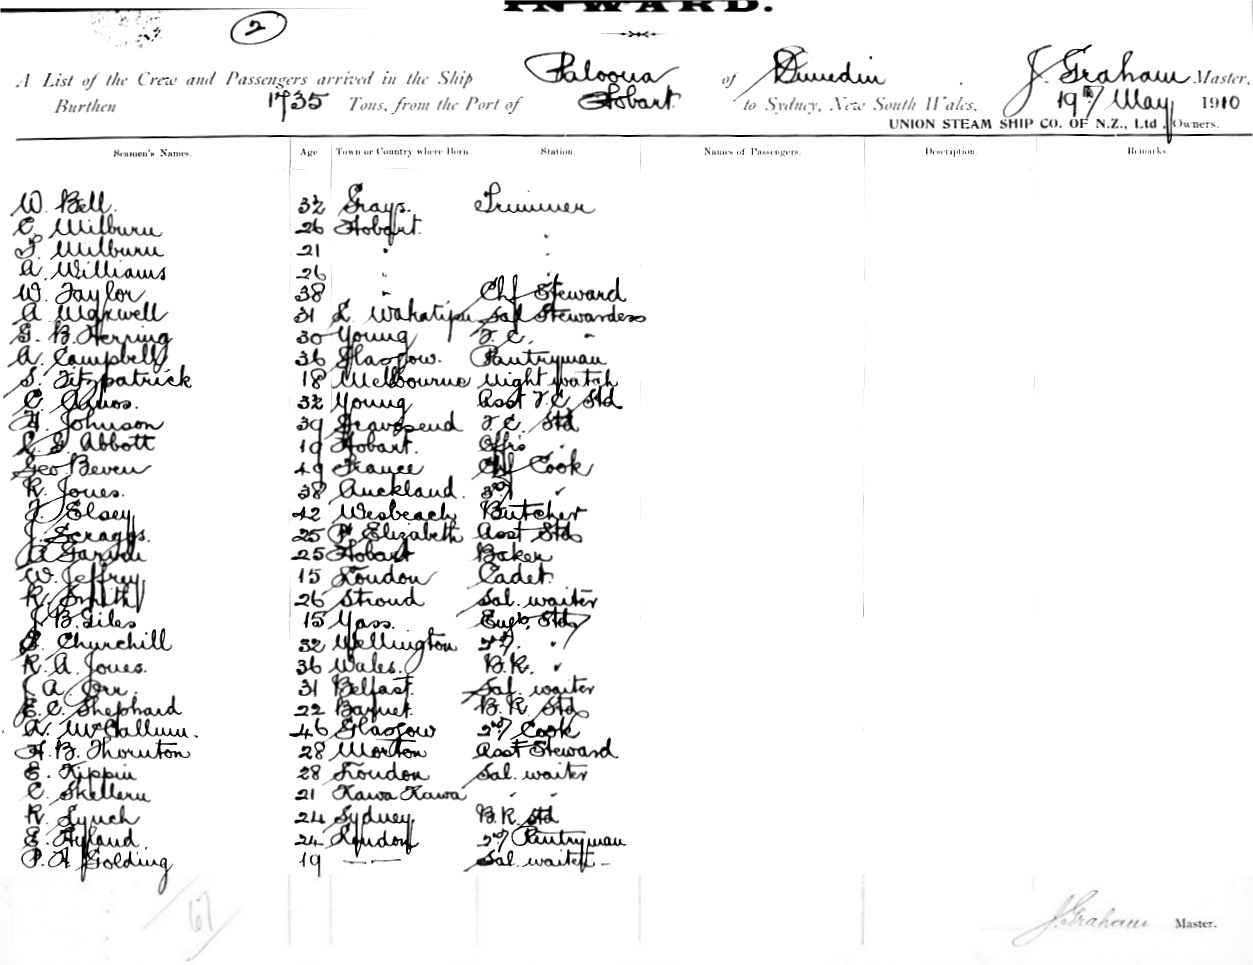 INWARD.
2
A List of the Crew and Passengers arrived in the Ship Paloona of Dunedin, J. Graham Master,
Burthen 1735 Tons, from the Port of Hobart to Sydney, New South Wales, 19th May 1910
UNION STEAM SHIP CO. OF N.Z., Ltd, Owners.
Seamen's Names. Age Town or Country where Born. Station. Names of Passengers. Description. Remarks.
W. Bell. 32 Grays. Trimmer
C. Milburn 26 Hobart. "
T. Milburn 21 " "
A. Williams 26 " "
W. Taylor 38 " Chf Steward
A. Maxwell 31 L. Wakatipu Sal Stewardess
G. B. Herring 30 Young F.C. "
A. Campbell 36 Glasgow. Pantryman
S. Fitzpatrick 18 Melbourne Night watch
C. Amos. 32 Young Asst F.C. Std
H. Johnson 39 Gravesend F.C. Std
C. G. Abbott 19 Hobart. Offrs "
Geo Beven 49 France Chf Cook
R. Jones. 38 Auckland. 3rd "
F. Elsey 42 Wesbeach Butcher
J. Scraggs. 25 Pt Elizabeth Asst Std
A. 25 Hobart Baker
W. Jeffrey 15 London Cadet.
R. Smith 26 Stroud Sal. waiter
J. B. Giles 15 Yass. Engrs Std
S. Churchill 32 Wellington 2nd. "
R. A. Jones. 36 Wales. B.R. "
J. A. Orr. 31 Belfast. Sal. waiter
E. C. Shephard 22 Barnet. B.R. Std
A. McCallum. 46 Glasgow 2nd Cook
H. B. Thornton 28 Morton Asst Steward
E. Kippin 28 London Sal. waiter
C. Skellern 21 Kawa Kawa " "
R. Lynch 24 Sydney B.R. Std
E. Hyland. 24 London 2nd Pantryman
P. H. Golding 19 — — Sal. waiter —
67
J. Graham Master.